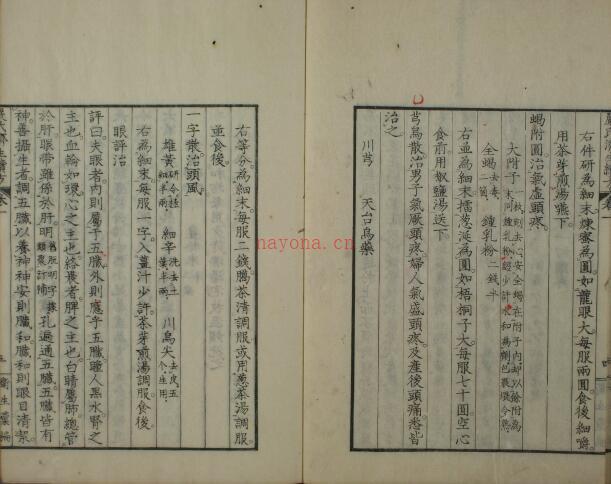 右件研為細末煉蜜為圓如龍眼大每服兩圓食後細嚼
用茶芽煎湯嚥下
蝎附圓治氣虛頭疼
大附子
全蝎去毒二箇 鍾乳粉二錢半
右並為細末擂葱涎為圓如梧桐子大每服七十圓空心
食前用椒鹽湯送下
芎烏散治男子氣厥頭疼婦人氣盛頭疼及產後頭痛悉皆
治之
川芎 天台烏藥
右等分為細末每服二錢臈茶清調服或用葱茶湯調服
並食後
一字散治頭風
雄黃 細辛洗去土 川烏尖去皮五個生用
右為細末每服一字入薑汁少許茶芽煎湯調服食後
眼評治
評曰夫眼者內則屬于五臟外則應乎五臟瞳人黑水腎之
主也血輪如環心之主也
脾之主也白睛屬肺總管
於肝眼帶雖係於肝明孔遍通五臟五臟皆有
神善攝生者調五臟以養神神安則臟和臟和則眼目清潔
nayona.cn